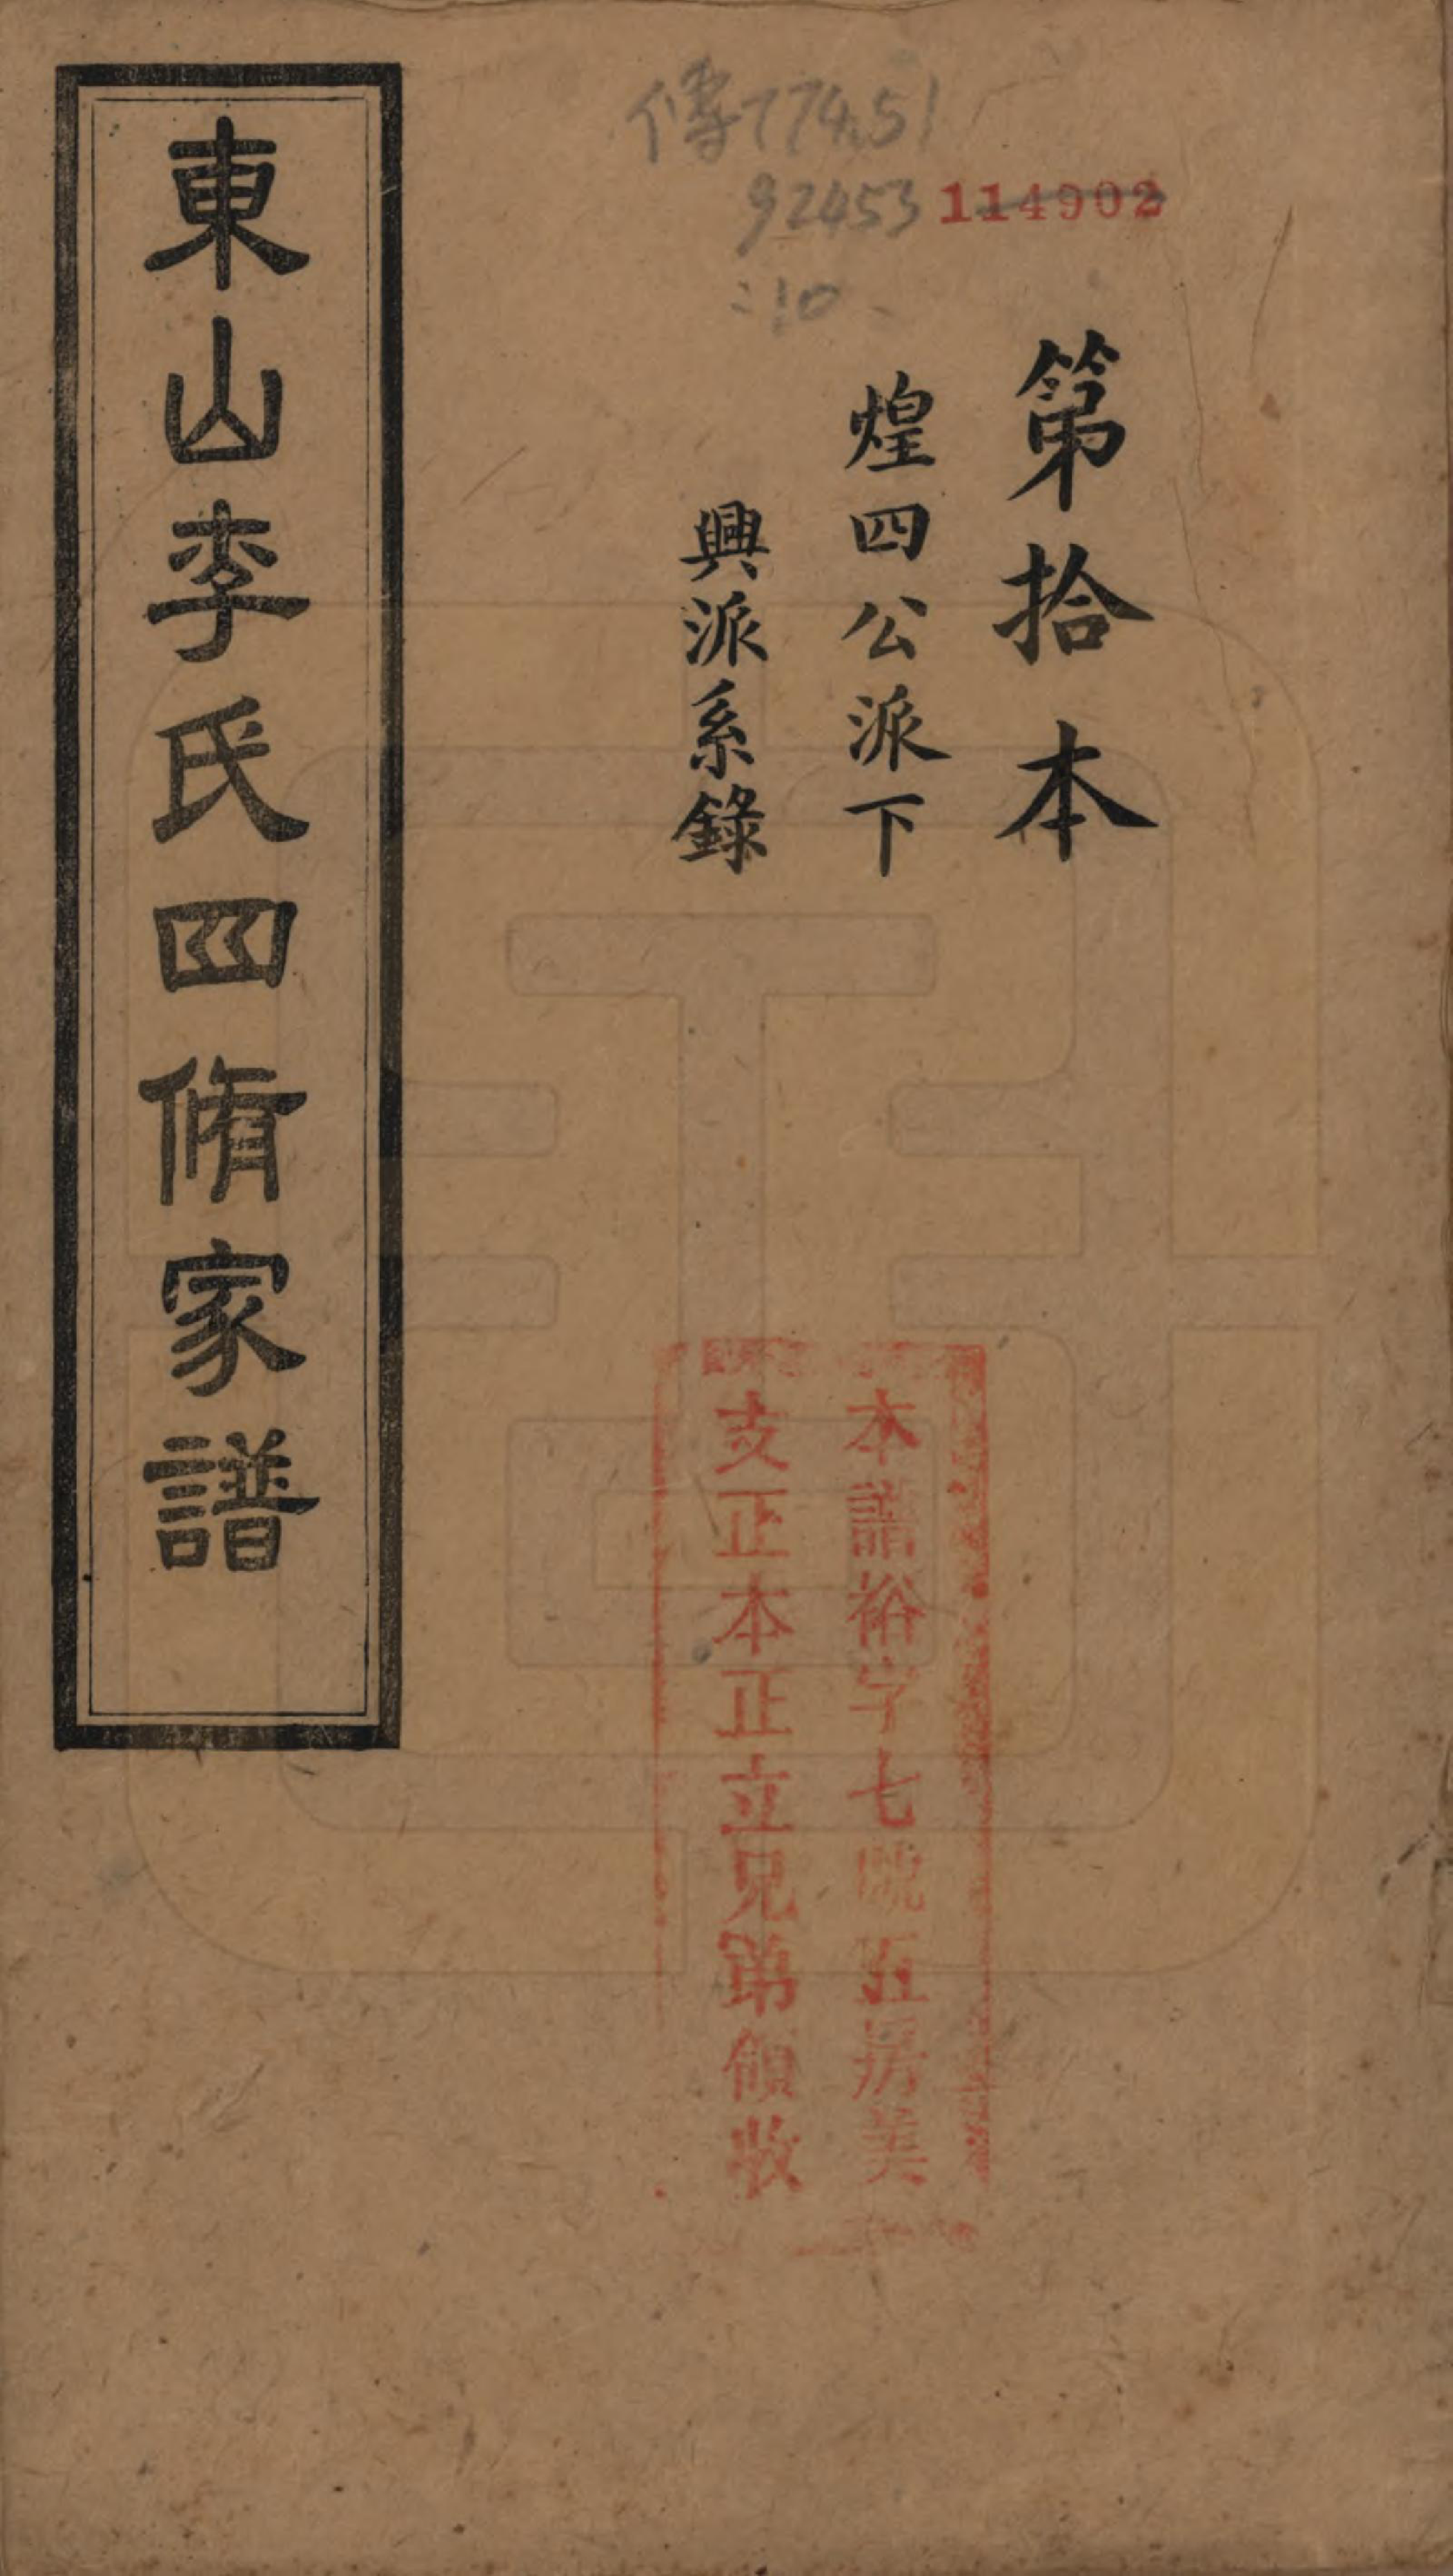 傳774.51
92453 114902
:10
第拾本
煌四公派下
興派系錄
本譜裕字七號五房美
支正本正立兄弟領收
東山李氏四脩家譜